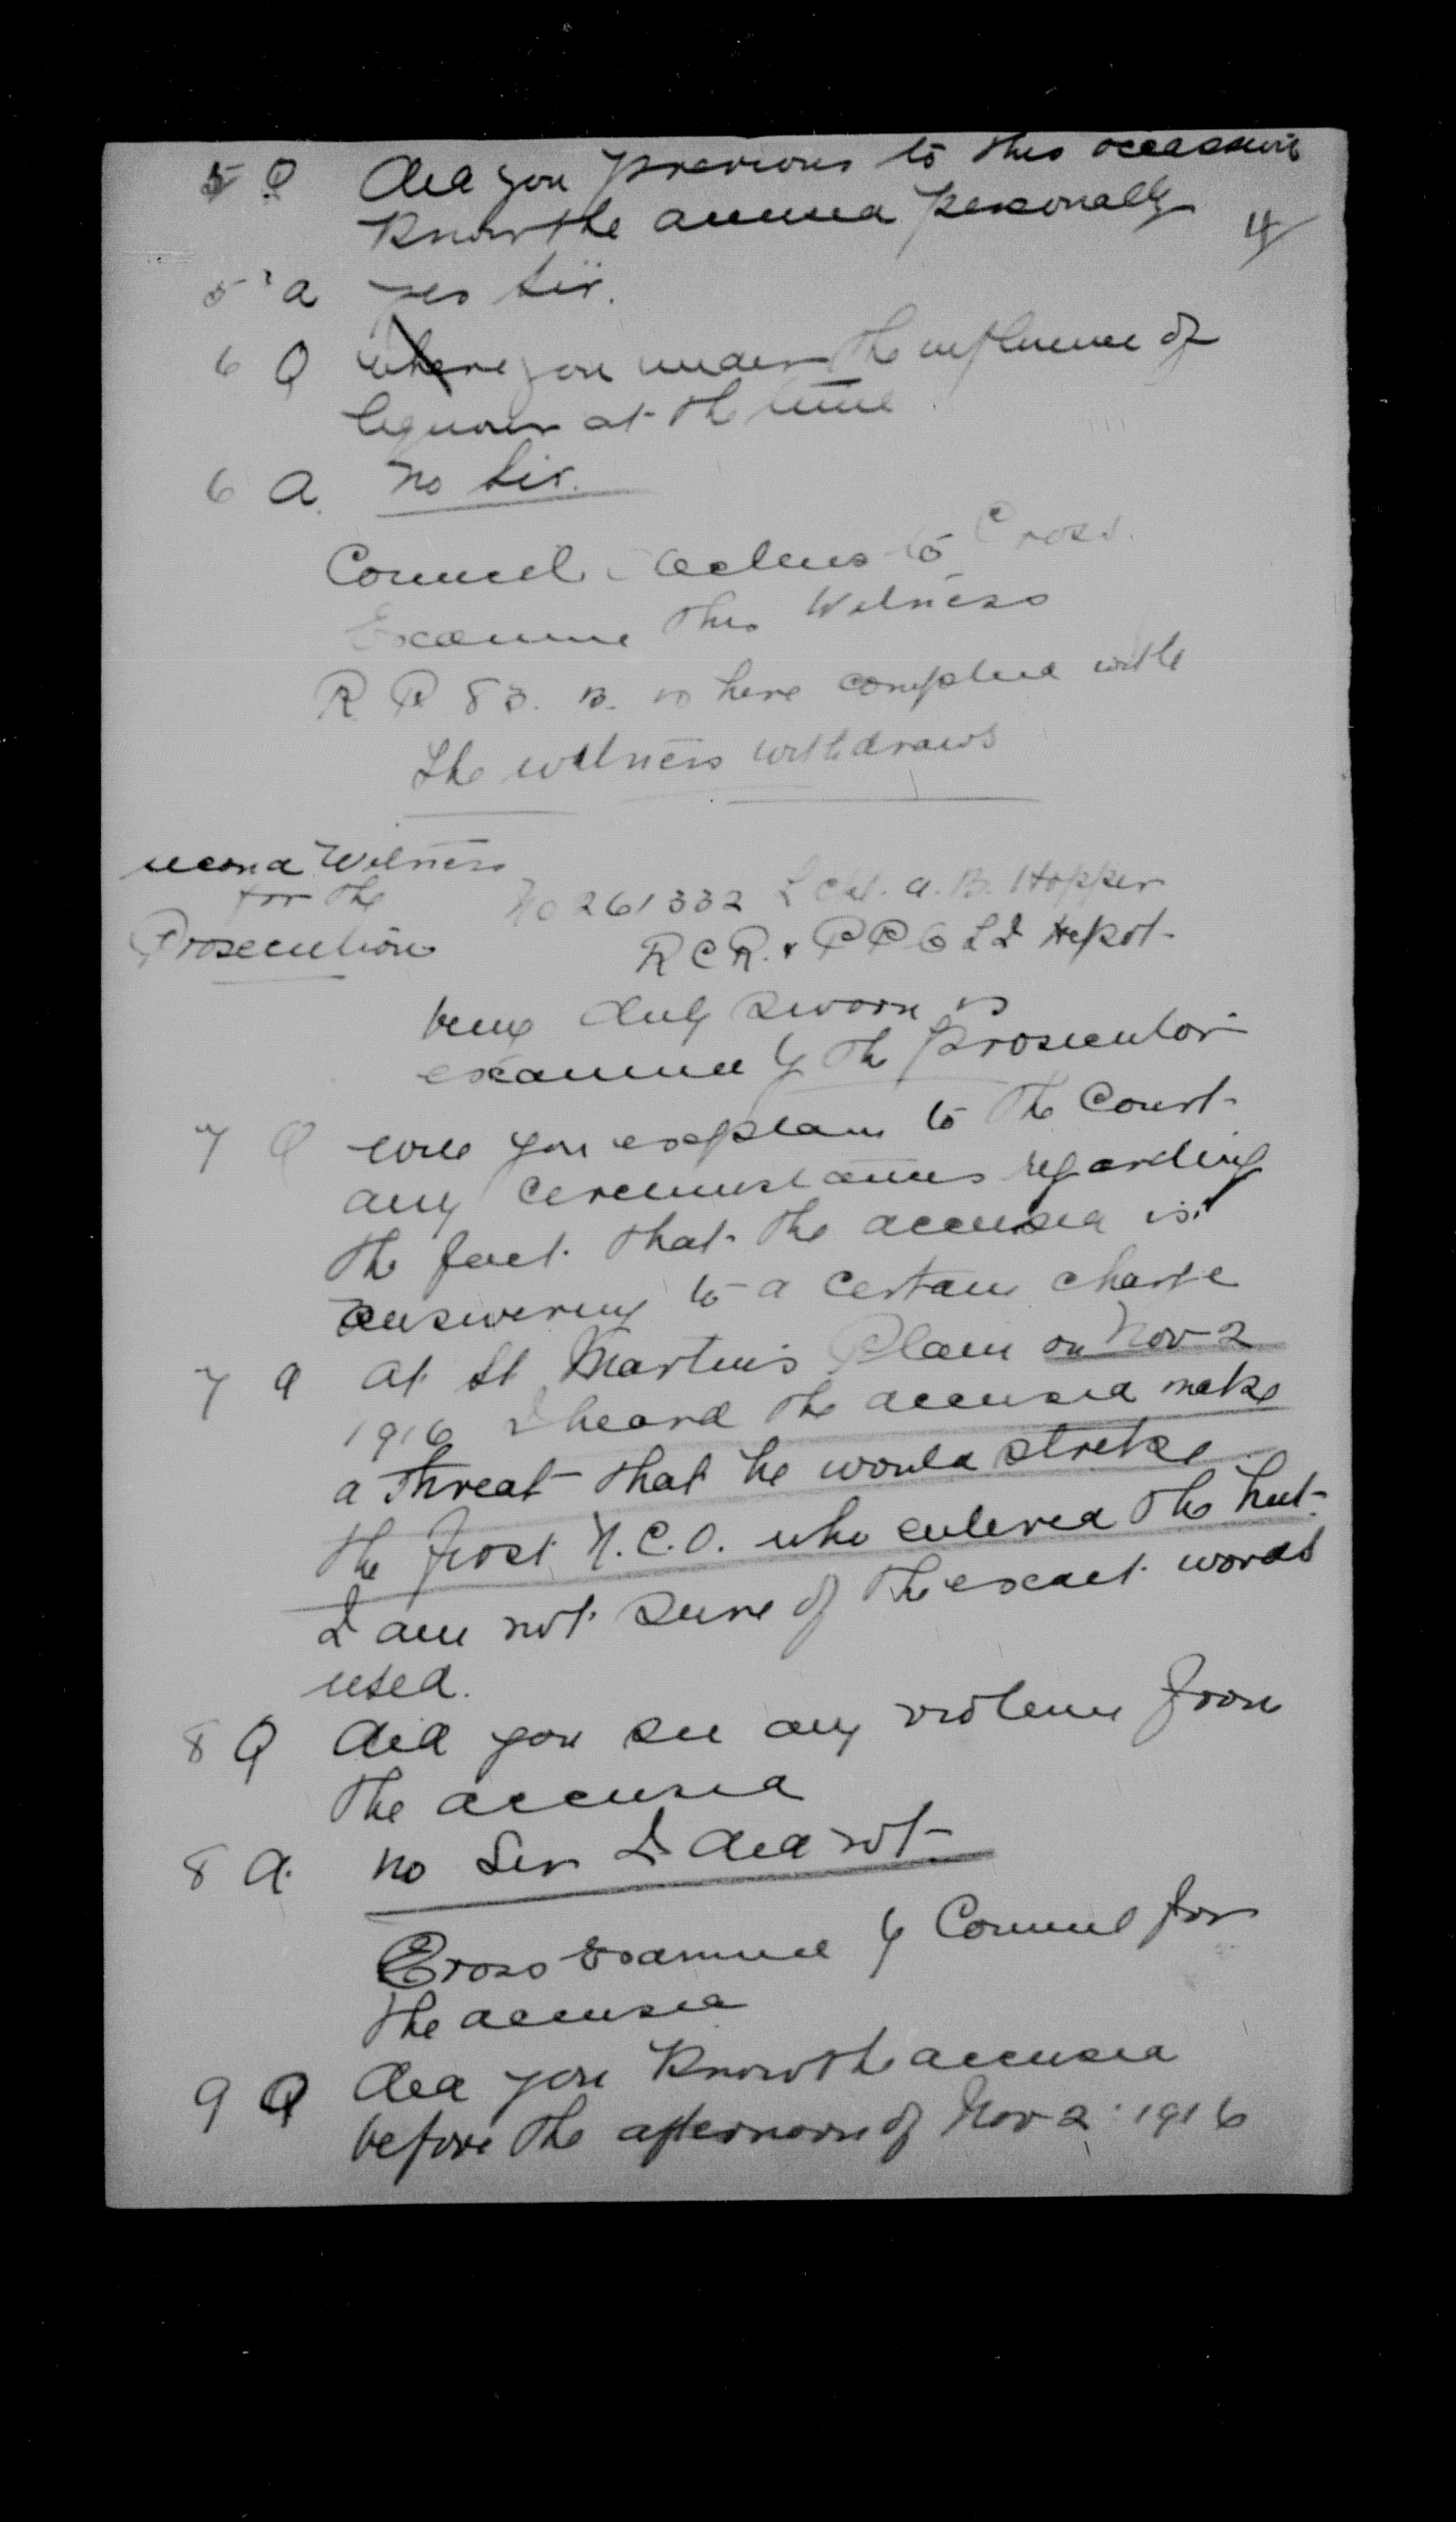 5 Q Did you previous to this occassion
know the accused personally
4/
5 a yes Sir.
6 Q where you under the influence of
liquour at the time
6 a. No Sir.
Councel declines to Cross
Examine this Witness
R P 83. B. is here complied with
The witness withdraws
second Witness
for the
Prosecution
No 261332 L Cpl. A. B. Hopper
R C R. & P P C L I Depot
being duly sworn is
examined by the Prosecutor
7 Q will you explain to the Court
any circumstances regarding
the fact that the accused is
answering to a certain charge
7 a At St Martin's Plain on Nov 2
1916 I heard the accused make
a threat that he would strike
the first N.C.O. who entered the hut.
I am not sure of the exact words
used.
8 Q Did you see any violence from
the accused
8 a. No Sir I did not
Cross Examined by Councel for
the accused
9 Q Did you know the accused
before the afternoon of Nov 2 1916